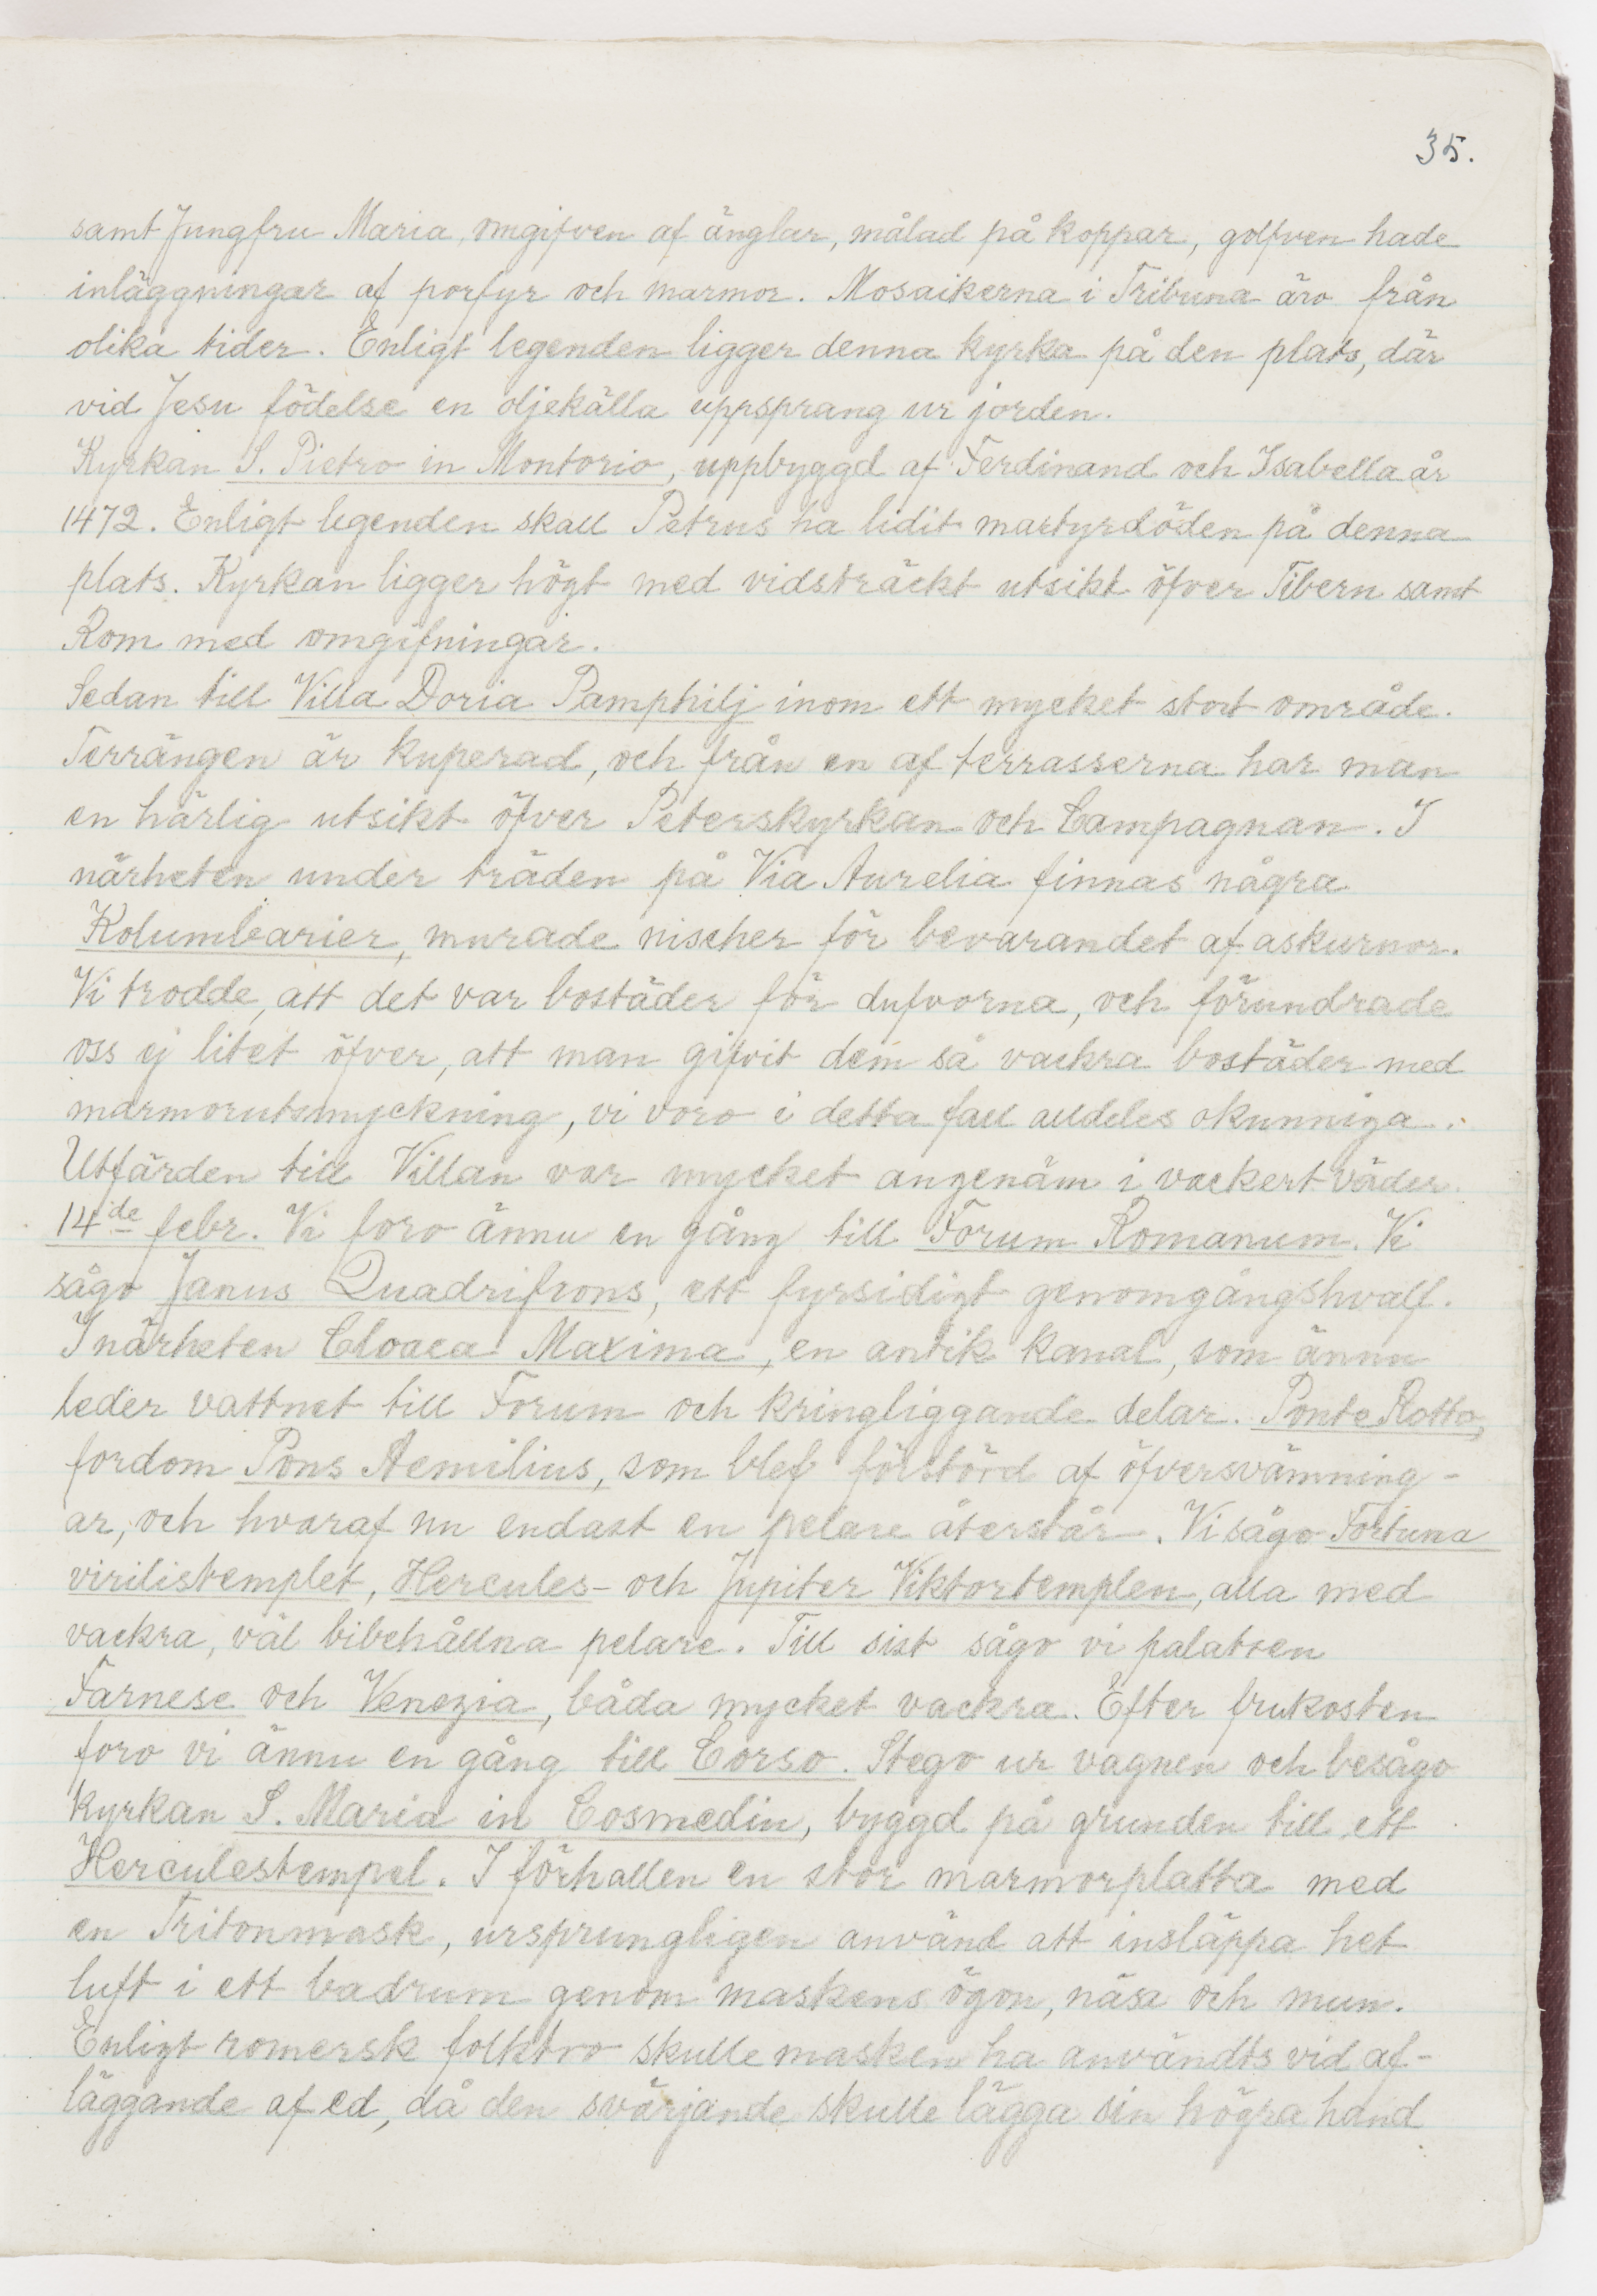 35.
samt Jungfru Maria, omgifven af änglar, målad på koppar, golfven hade
inläggningar af porfyr och marmor. Mosaikerna i Tribuna äro från
olika tider. Enligt legenden ligger denna kyrka på den plats, där
vid Jesu födelse en oljekälla uppsprang ur jorden.
Kyrkan S. Pietro in Montorio, uppbyggd af Ferdinand och Isabella år
1472. Enligt legenden skall Petrus ha lidit martyrdöden på denna
plats. Kyrkan ligger högt med vidsträckt utsikt öfver Tibern samt
Rom med omgifningar.
Sedan till Villa Doria Pamphilj inom ett mycket stort område.
Terrängen är kuperad, och från en af terrasserna har man
en härlig utsikt öfver Peterskyrkan och Campagnan. I
närheten under träden på Via Aurelia finnas några
Kolumbarier, murade nischer för bevarandet af askurnor.
Vi trodde, att det var bostäder för dufvorna, och förundrade
oss ej litet öfver, att man gifvit dem så vackra bostäder med
marmorutsmyckning, vi voro i detta fall alldeles okunniga.
Utfärden till Villan var mycket angenäm i vackert väder.
14ide febr. Vi foro ännu en gång till Forum Romanum. Vi
sågo Janus Quadrifrons, ett fyrsidigt genomgångshvalf.
I närheten Cloaca Maxima, en antik kanal, som ännu
leder vattnet till Forum och kringliggande delar. Ponte Rotto,
fordom Pons Aemilius, som blef förstörd af öfversvämning-
ar, och hvaraf nu endast en pelare återstår. Vi sågo Fortuna
virilistemplet, Hercules- och Jupiter Viktortemplen, alla med
vackra, väl bibehållna pelare. Till sist sågo vi palatsen
Farnese och Venezia, båda mycket vackra. Efter frukosten
foro vi ännu en gång till Corso. Stego ur vagnen och besågo
kyrkan S. Maria in Cosmedin, byggd på grunden till ett
Herculestempel. I förhallen en stor marmorplatta med
en Tritonmask, ursprungligen använd att insläppa het
luft i ett badrum genom maskens ögon, näsa och mun.
Enligt romersk folktro skulle masken ha användts vid af-
läggande af ed, då den svärjande skulle lägga sin högra hand